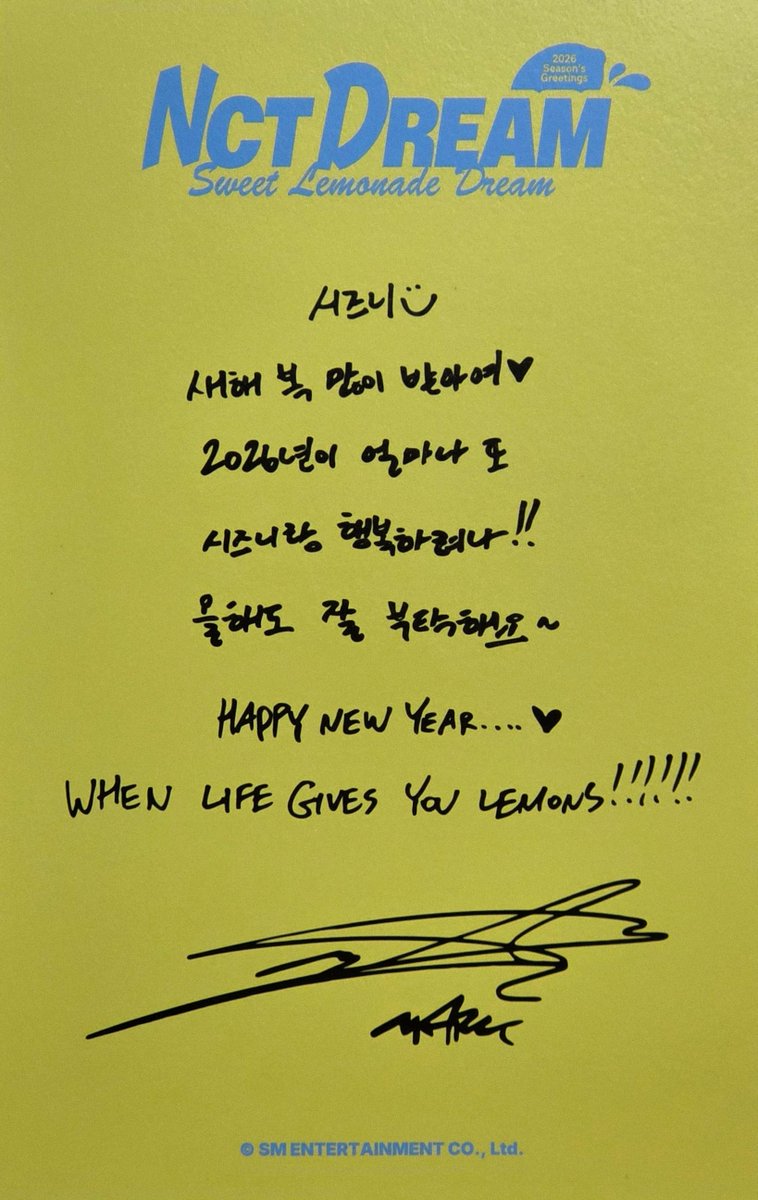 2026
Season's
Greetings
NCT DREAM
Sweet Lemonade Dream
시즈니
새해 복 많이 받아여♥
2026년이 얼마나 또
시즈니랑 행복하려나!!
올해도 잘 부탁해요~
HAPPY NEW YEAR.... ♥
WHEN LIFE GIVES YOU LEMONS!!!!!!
MARK
© SM ENTERTAINMENT CO., Ltd.